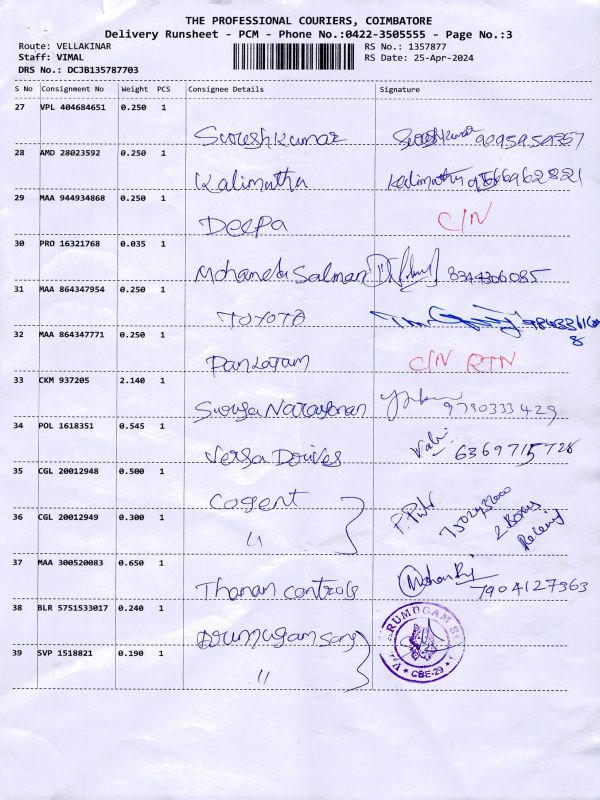 THE PROFESSIONAL COURIERS, COIMBATORE
Delivery Runsheet - PCM - Phone No.:0422-3505555 - Page No.:3
Route: VELLAKINAR RS No.: 1357877
Staff: VIMAL RS Date: 25-Apr-2024
DRS No.: DCJB135787703
S No Consignment No Weight PCS Consignee Details Signature
27 VPL 404684651 0.250 1
Sureshkumar Sureshkumar 9095959357
28 AMD 28023592 0.250 1
Kalimuthu Kalimuthu
29 MAA 944934868 0.250 1
Deepa C/N
30 PRO 16321768 0.035 1
Mohamed Salman 8344306085
31 MAA 864347954 0.250 1
TOYOTA
32 MAA 864347771 0.250 1
Pankajam C/N RTN
33 CKM 937205 2.140 1
Suriya Narayanan 9780333429
34 POL 1618351 0.545 1
Versa Drives 6369715728
35 CGL 20012948 0.500 1
Cogent
36 CGL 20012949 0.300 1
〃 2 Boxes
37 MAA 300520083 0.650 1
Thanan Controls 7904127363
38 BLR 5751533017 0.240 1
Arumugam
39 SVP 1518821 0.190 1
〃 CBE-29